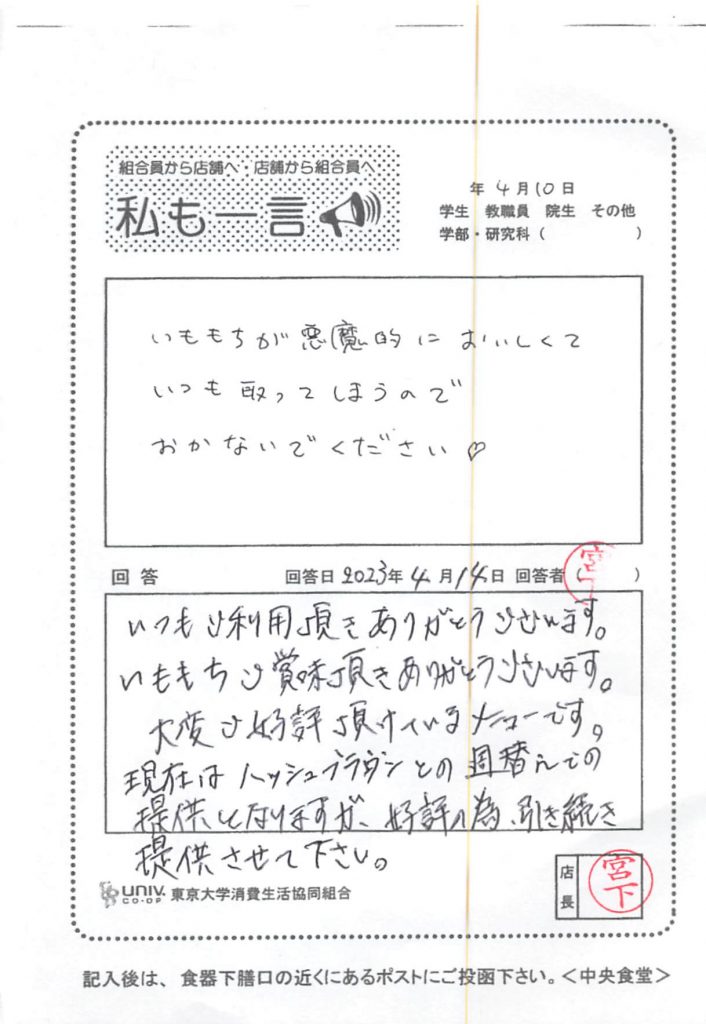 組合員から店舗へ・店舗から組合員へ
私も一言
年 4月10日
学生 教職員 院生 その他
学部・研究科( )
いももちが悪魔的においしくて
いつも取ってしまうので
おかないでください♡
回答 回答日 2023年 4月14日 回答者( 宮下 )
いつもご利用頂きありがとうございます。
いももちご賞味頂きありがとうございます。
大変ご好評頂けているメニューです。
現在はハッシュブラウンとの週替えでの
提供となりますが、好評の為、引き続き
提供させて下さい。
UNIV. CO-OP 東京大学消費生活協同組合
店長 宮下
記入後は、食器下膳口の近くにあるポストにご投函下さい。<中央食堂>